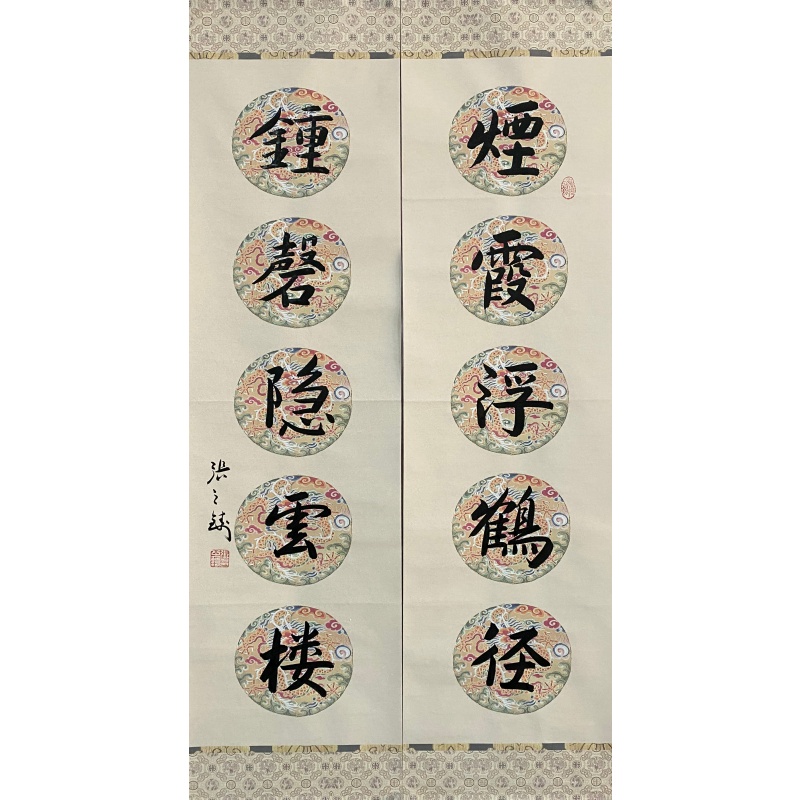 煙霞浮鶴径
鍾磬隐雲楼
張之鋳